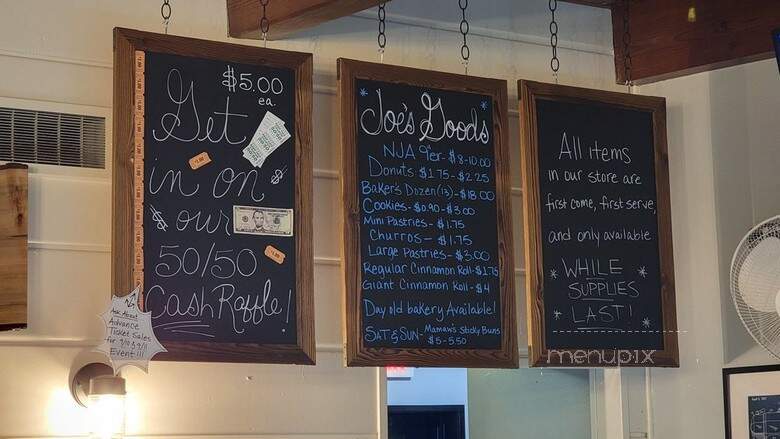 $5.00
ea.
Get
in on
$
$ our
50/50
Cash Raffle!
Ask About
Advance
Ticket Sales
for 9/10 & 9/11
Event!!!
Joe's Goods
Donuts: $1.75 - $2.25
Baker's Dozen (13) - $18.00
Cookies - $0.90 - $3.00
Mini Pastries - $1.75
Churros - $1.75
Large Pastries - $3.00
Regular Cinnamon Roll - $1.75
Giant Cinnamon Roll - $4
Day old bakery Available!
Sat & Sun - Mamaw's Sticky Buns
$5 - 5.50
All items
in our store are
first come, first serve,
and only available
WHILE
SUPPLIES
LAST!
menupix